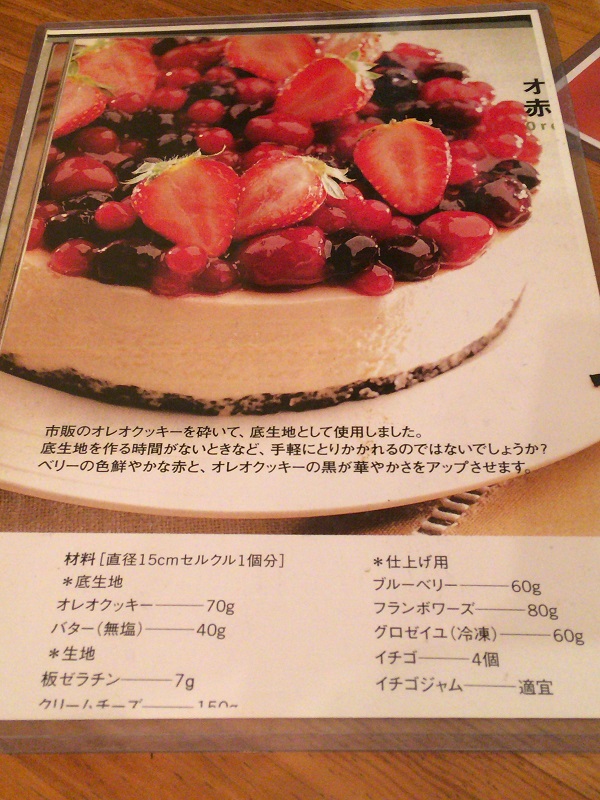 オ
赤
Ore
市販のオレオクッキーを砕いて、底生地として使用しました。
底生地を作る時間がないときなど、手軽にとりかかれるのではないでしょうか?
ベリーの色鮮やかな赤と、オレオクッキーの黒が華やかさをアップさせます。
材料[直径15cmセルクル1個分]
*底生地
オレオクッキー――70g
バター(無塩)――40g
*生地
板ゼラチン――7g
クリームチーズ――150g
*仕上げ用
ブルーベリー――60g
フランボワーズ――80g
グロゼイユ(冷凍)――60g
イチゴ――4個
イチゴジャム――適宜